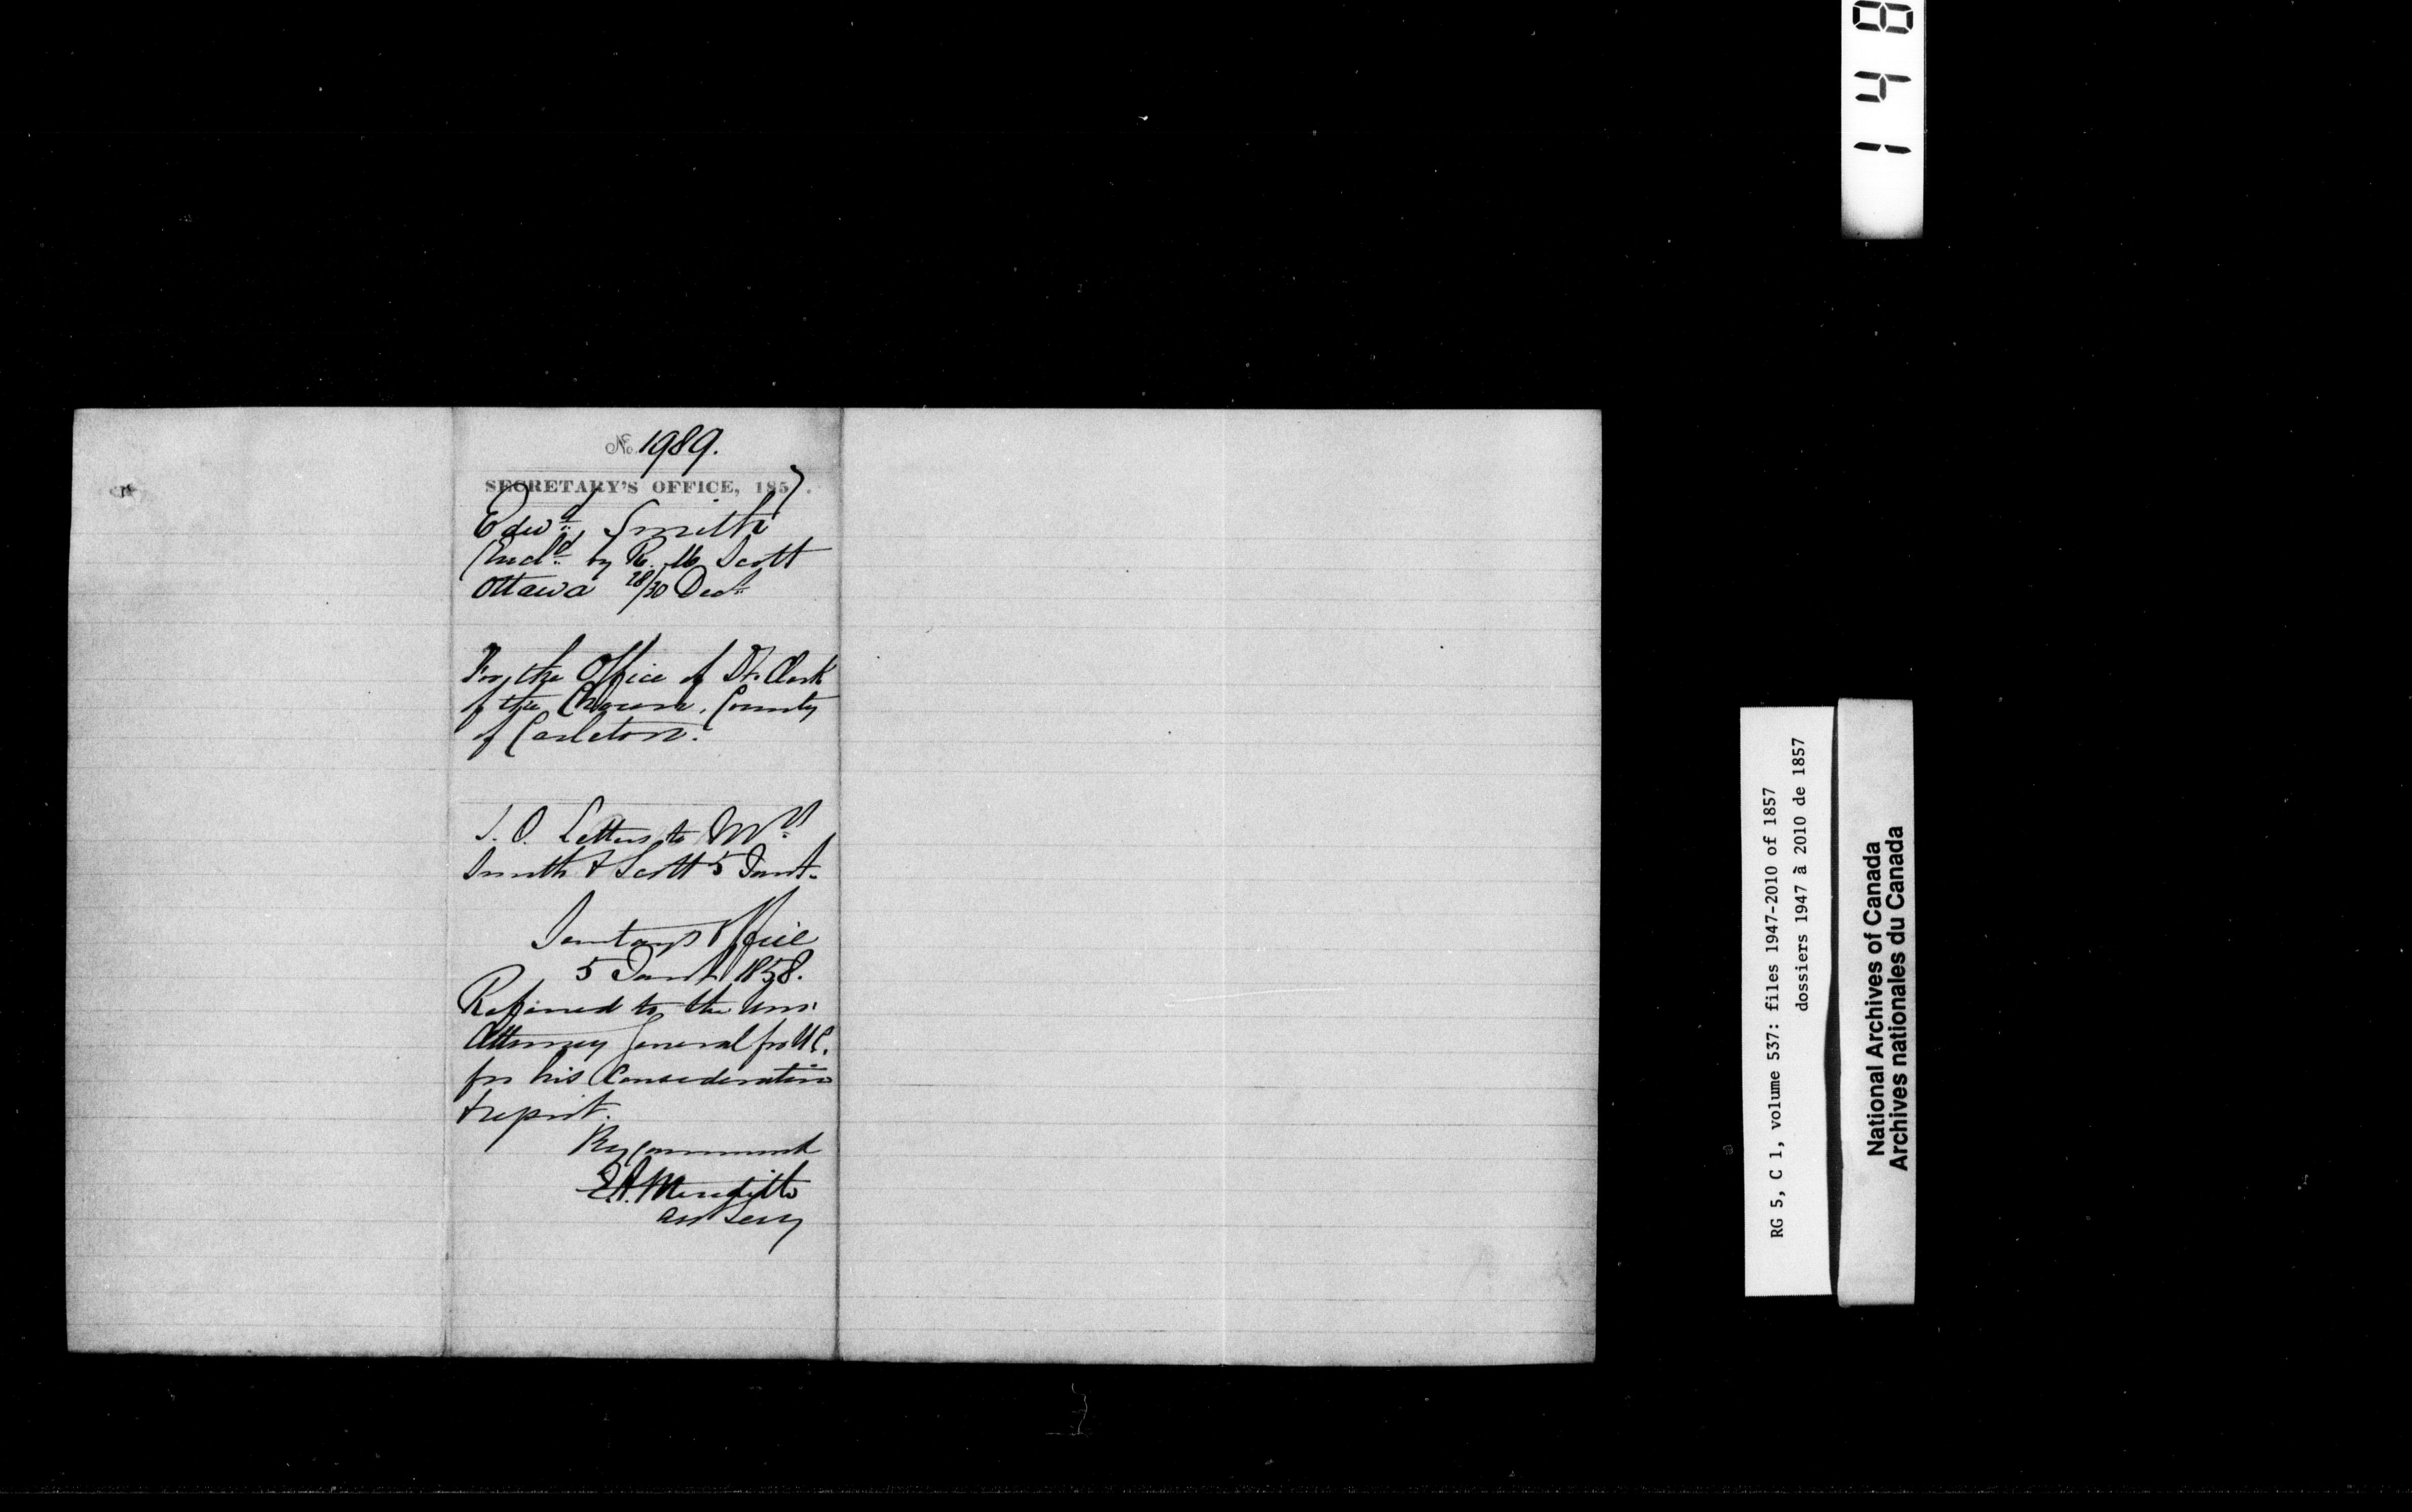 No. 1989.
SECRETARY'S OFFICE, 1857.
Edwd. Smith
(Encld. by R. W. Scott
Ottawa 28/30 Decr.
For the Office of Dy. Clerk
of the Crown, County
of Carleton.
S. O. Letters to Mrs
Smith & Scott 5 Jany.
Secretary's Office
5 Jany 1858.
Referred to the Hon:
Attorney General for U.C.
for his Consideration
& report.
By Command
E. A. Meredith
Ass Secy
148
RG 5, C 1, volume 537: files 1947-2010 of 1857
dossiers 1947 à 2010 de 1857
National Archives of Canada
Archives nationales du Canada